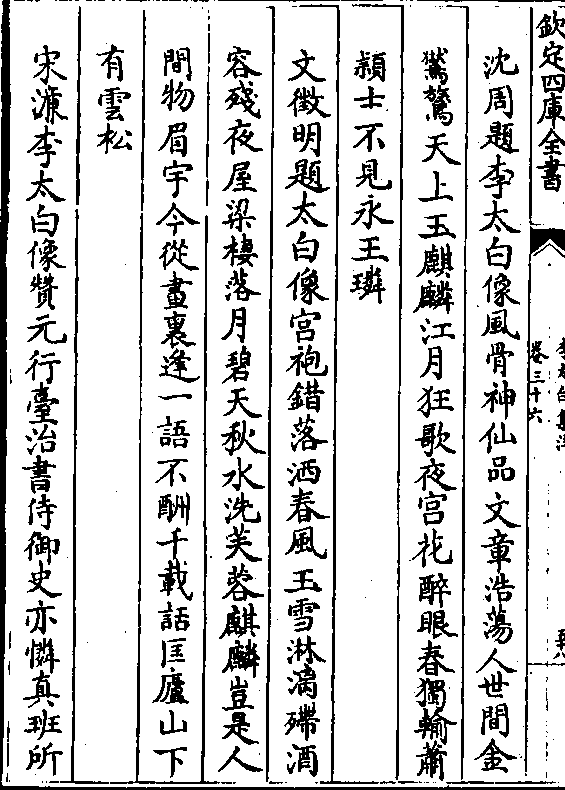 欽定四庫全書
卷三十六
沈周題李太白像風骨神仙品文章浩蕩人世間金
鸑驚天上玉麒麟江月狂歌夜宫花醉眼春獨輸蕭
頴士不見永王璘
文徵明題太白像宫袍錯落洒春風玉雪淋漓殢酒
容殘夜屋梁棲落月碧天秋水洗芙蓉麒麟豈是人
間物眉宇今從畫裏逢一語不酬千載話匡廬山下
有雲松
宋濂李太白像贊元行臺治書侍御史亦憐真班所